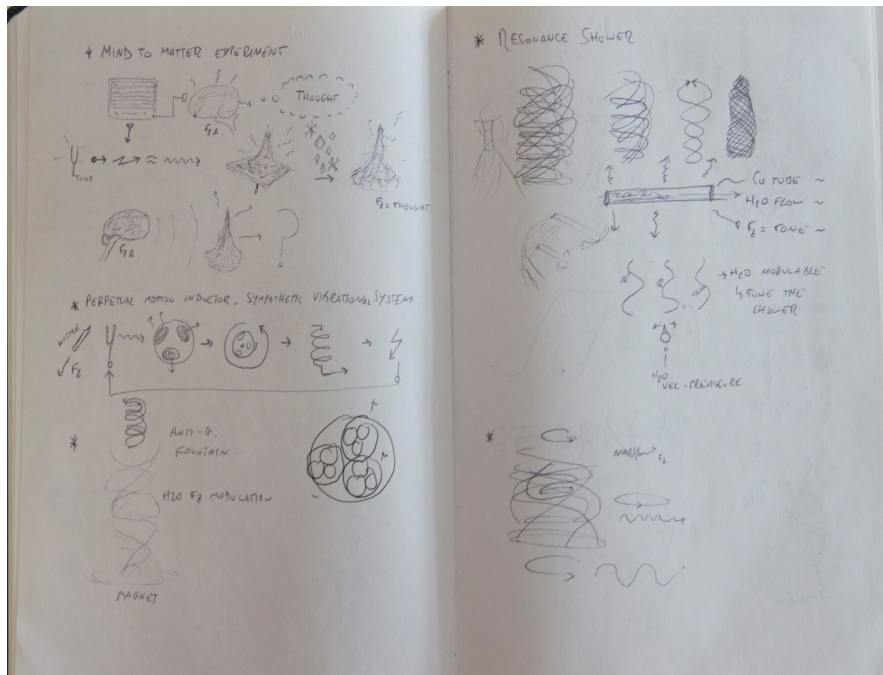 * MIND TO MATTER EXPERIMENT
THOUGHT
TUNE
FZ = THOUGHT
* PERPETUAL MOTION INDUCTOR - SYMPATHETIC VIBRATIONAL SYSTEM
FZ
* ANTI-G.
FOUNTAIN
H2O FZ MODULATION
MAGNET
* RESONANCE SHOWER
CU TUBE ~
H2O FLOW ~
FZ = TONE ~
→ H2O MODULABLE
↳ TUNE THE
SHOWER
H2O
VEL-PREASSURE
*
FZ